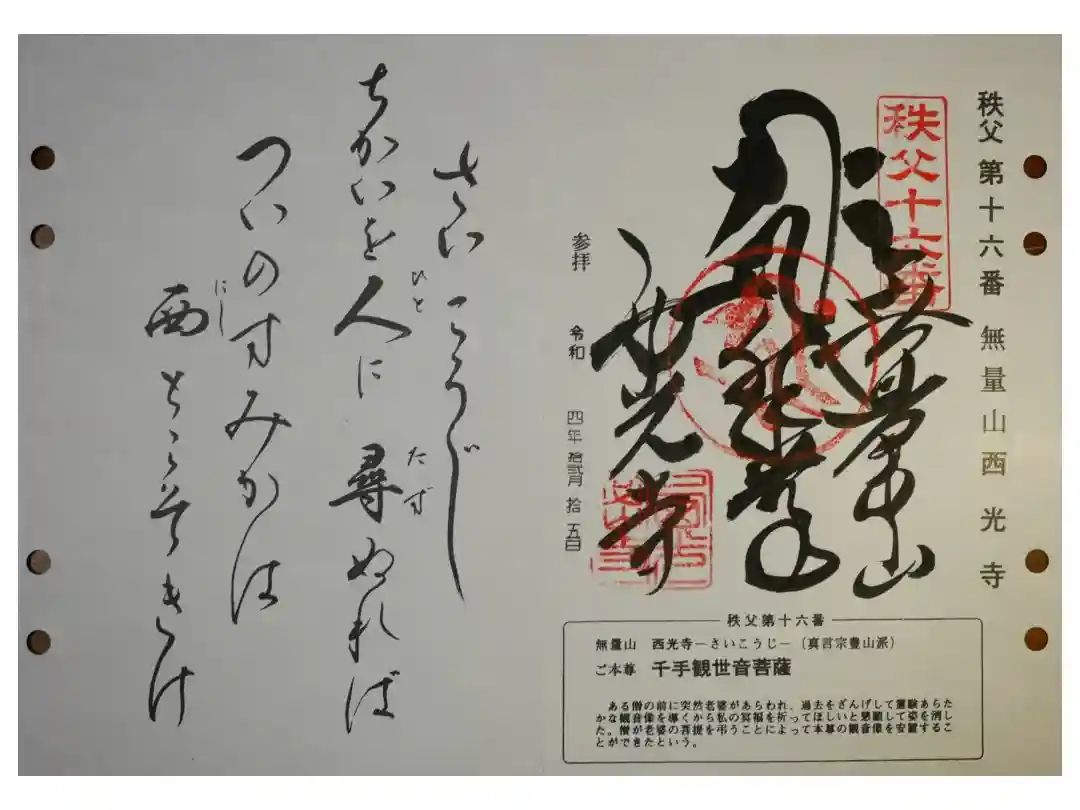 秩父第十六番 無量山西光寺
秩父十六番
無量山
西光寺
参拝 令和 四年 拾弐月 拾五日
秩父第十六番
無量山 西光寺―さいこうじ―（真言宗豊山派）
ご本尊 千手観世音菩薩
ある僧の前に突然老婆があらわれ、過去をざんげして霊験あらた
かな観音像を導くから私の冥福を祈ってほしいと懇願して姿を消し
た。僧が老婆の菩提を弔うことによって本尊の観音像を安置するこ
とができたという。
さいこうじ
ちかいを人に尋ぬれば
ひと
たず
ついのすみかは
西とこそきけ
にし